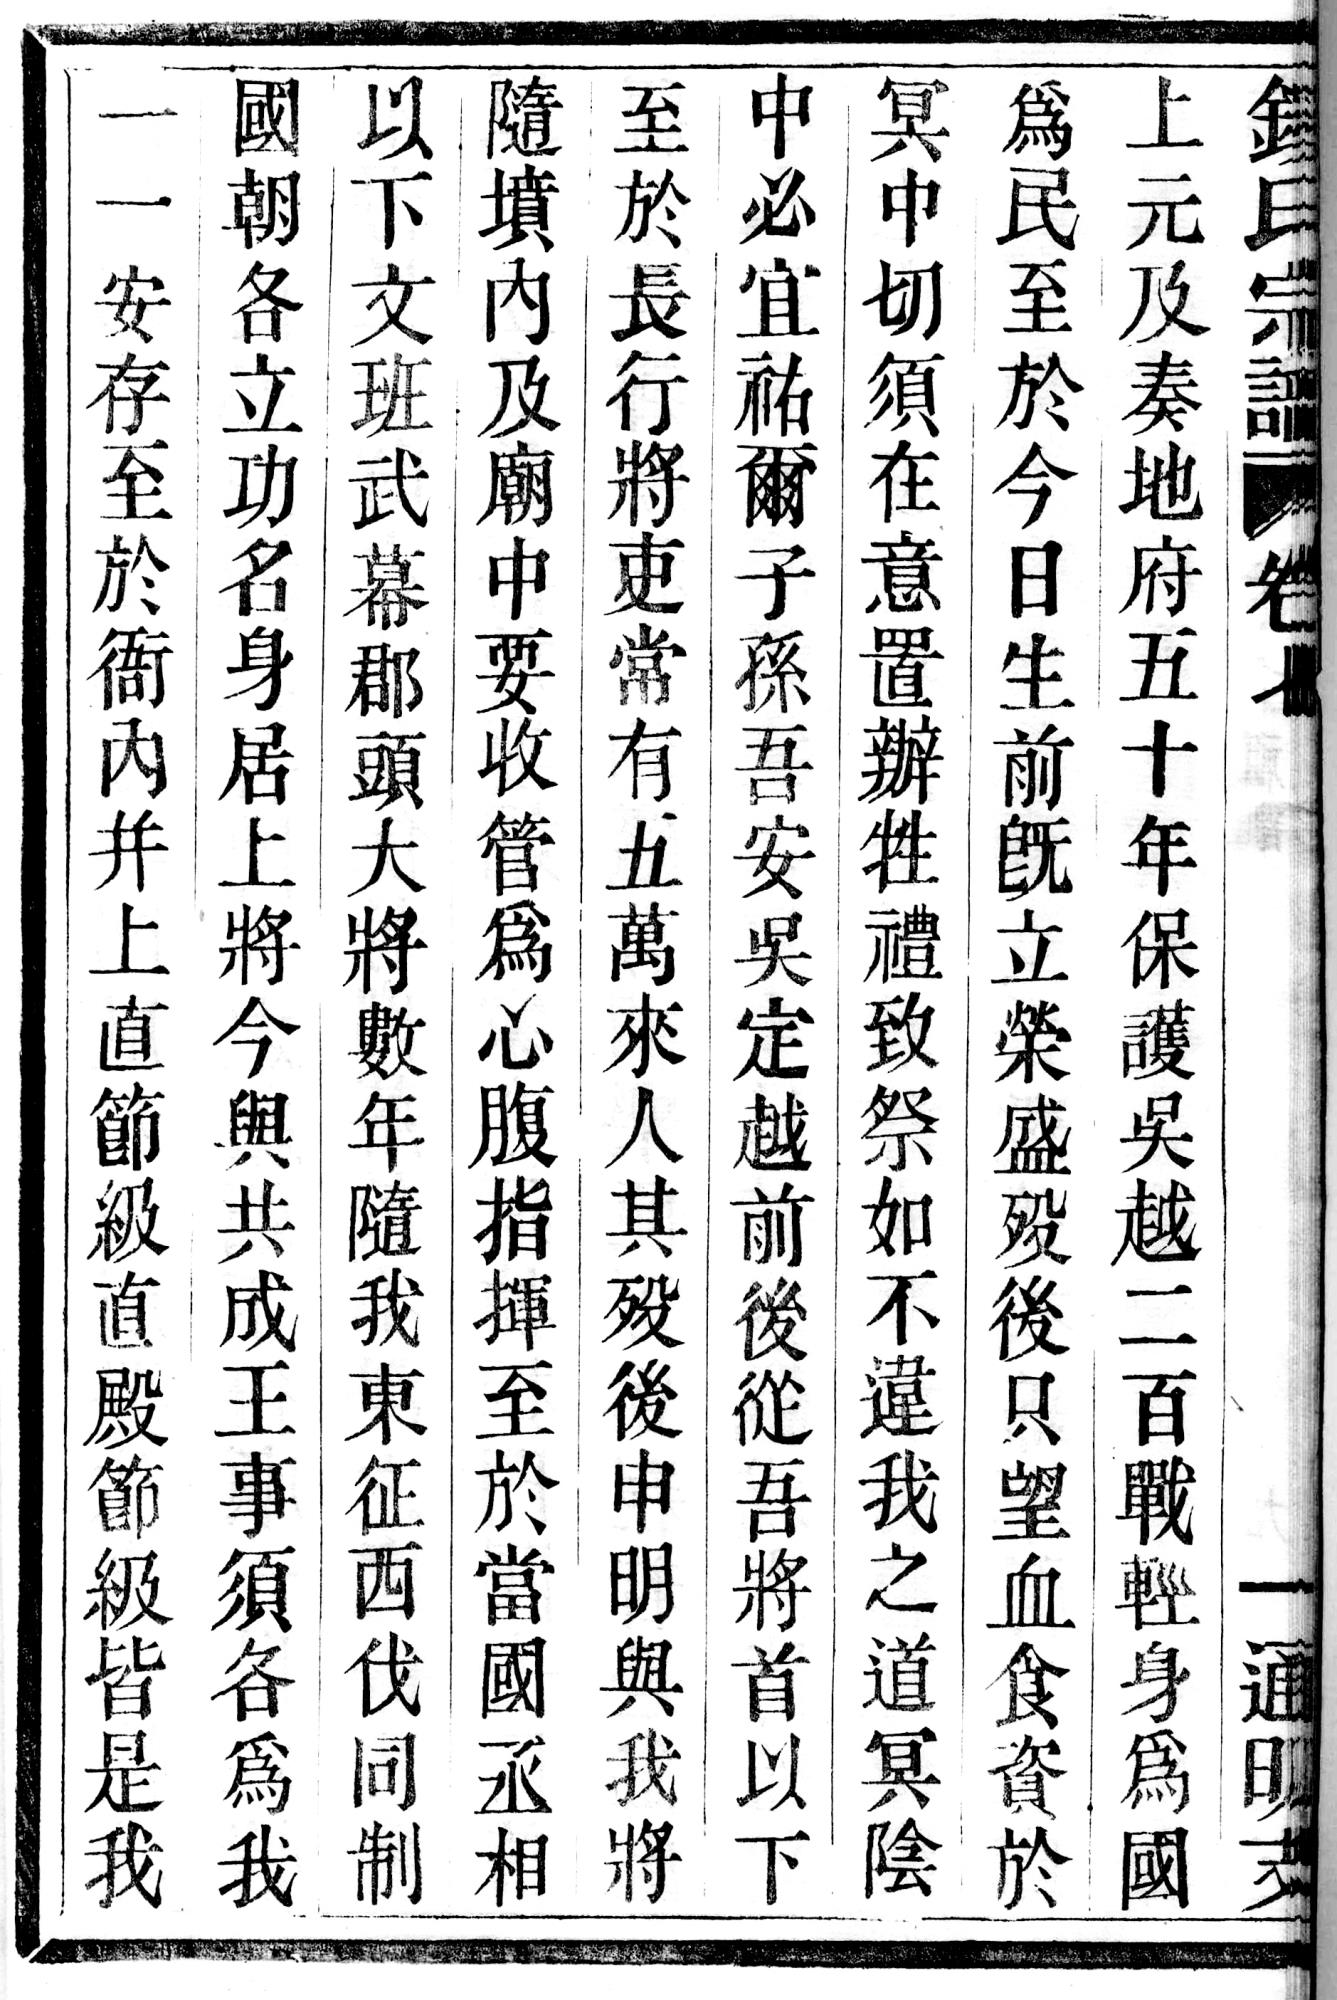 錢氏宗譜 卷 通明
上元及奏地府五十年保護吳越二百戰輕身爲國
爲民至於今日生前旣立榮盛歿後只望血食資於
冥中切須在意置辦牲禮致祭如不違我之道冥陰
中必宜祐爾子孫吾安吳定越前後從吾將首以下
至於長行將吏常有五萬來人其歿後申明與我將
隨墳內及廟中要收管爲心腹指揮至於當國丞相
以下文班武幕郡頭大將數年隨我東征西伐同制
國朝各立功名身居上將今與共成王事須各爲我
一一安存至於衙內幷上直節級直殿節級皆是我